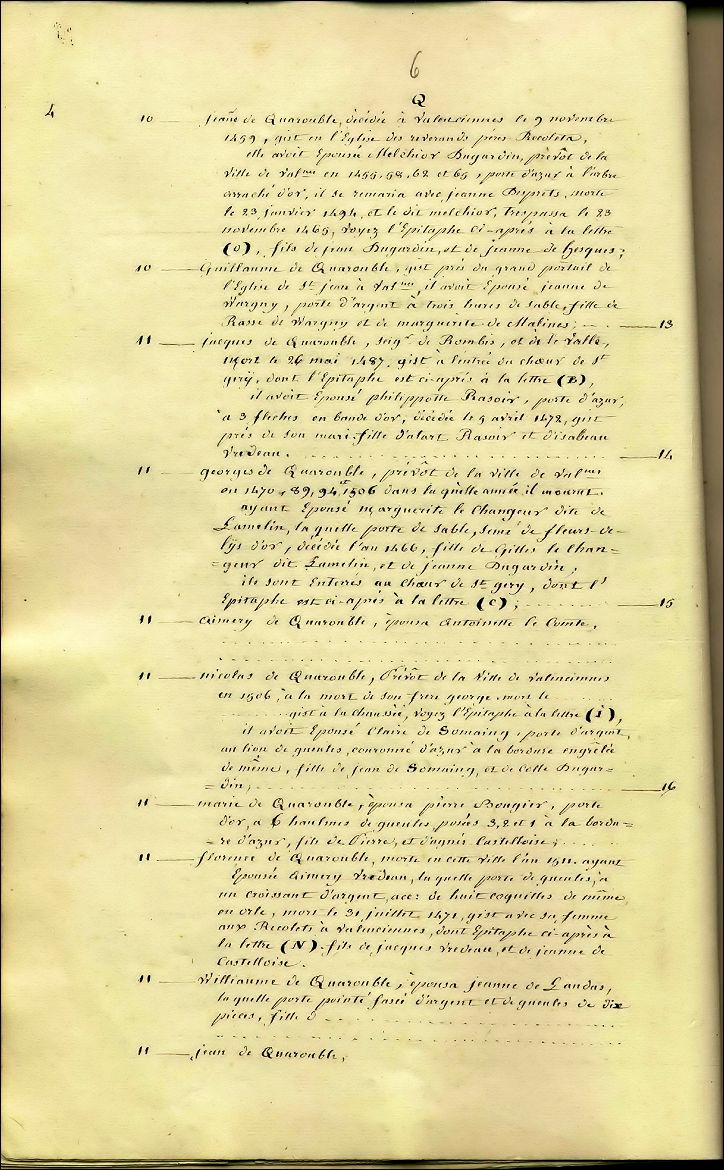 6
Q
4
10 — jeañe de Quarouble, décédée à Valenciennes le 9 novembre
1459, gist en l'Eglise des reverands pères Recolets,
elle avoit Epousée Melchior Dugardin, prévôt de la
ville de Val.nnes en 1455, 58, 62 et 65, porte d'azur à l'arbre
arraché d'or, il se remaria avec jeanne Desprets, morte
le 23 janvier 1494, et le dit melchior, trespassa le 23
novembre 1469, voyez l'Epitaphe ci-après à la lettre
(O), fils de jean Dugardin, et de jeanne de hesques;
10 — Guillaume de Quarouble, gist près du grand portail de
l'Eglise de St jean à Val.nnes, il avoit Epousé jeanne de
Wargny, porte d'argent à trois hures de sable, fille de
Rasse de Wargny et de marguerite de Malines; — 13
11 — jacques de Quarouble, seig.r de Rombis, et de le Valle,
mort le 26 mai 1487, gist à l'entrée du chœur de St
gery, dont l'Epitaphe est ci-après à la lettre (B),
il avoit Epousé philippotte Rasoir, porte d'azur,
à 3 fleches en bande d'or, décédée le 9 avril 1472, gist
près de son mari, fille d'alart Rasoir et d'isabeau
Vredeau. — 14
11 — georges de Quarouble, prévôt de la ville de Val.nnes
en 1470, 89, 94 et 1506 dans la qu'elle année, il mourut,
ayant Epousé marguerite le Changeur dite de
Lamelin, la quelle porte de sable, semé de fleurs-de-
lijs d'or, décédée l'an 1466, fille de Gilles le Chan=
=geur dit Lamelin, et de jeanne Dugardin,
ils sont Enterres au Chœur de St gery, dont l'
Epitaphe est ci-après à la lettre (C); — 15
11 — aimery de Quarouble, épousa antoinette le Comte,
11 — nicolas de Quarouble, Prévôt de la Ville de Valenciennes
en 1506, à la mort de son frere george, mort le
gist à la chaussée, voyez l'Epitaphe à la lettre (I),
il avoit Epousé Claire de Somaing, porte d'argent,
au lion de gueules, couronné d'azur à la bordure engrelée
de même, fille de jean de Somaing, et de Colle Dugar=
=din; — 16
11 — marie de Quarouble, épousa pierre Bougier, porte
d'or, à 6 haulmes de gueules, posées 3, 2 et 1 à la bordu=
=re d'azur, fils de Pierre, et d'agnès Castelloise;
11 — florence de Quarouble, morte en cette ville l'an 1511. ayant
Epousée Aimery Vredeau, la quelle porte de gueules, à
un croissant d'argent, acc: de huit coquilles de même,
en orle, mort le 31 juillet 1471, gist avec sa femme
aux Recolets à Valenciennes, dont Epitaphe ci-après à
la lettre (N). fils de jacques Vredeau, et de jeanne de
Castelloise.
11 — Williaume de Quarouble, épousa jeanne de Landas,
la quelle porte pointé fascé d'argent et de gueules de dix
pieces, fille d
11 — jean de Quarouble,